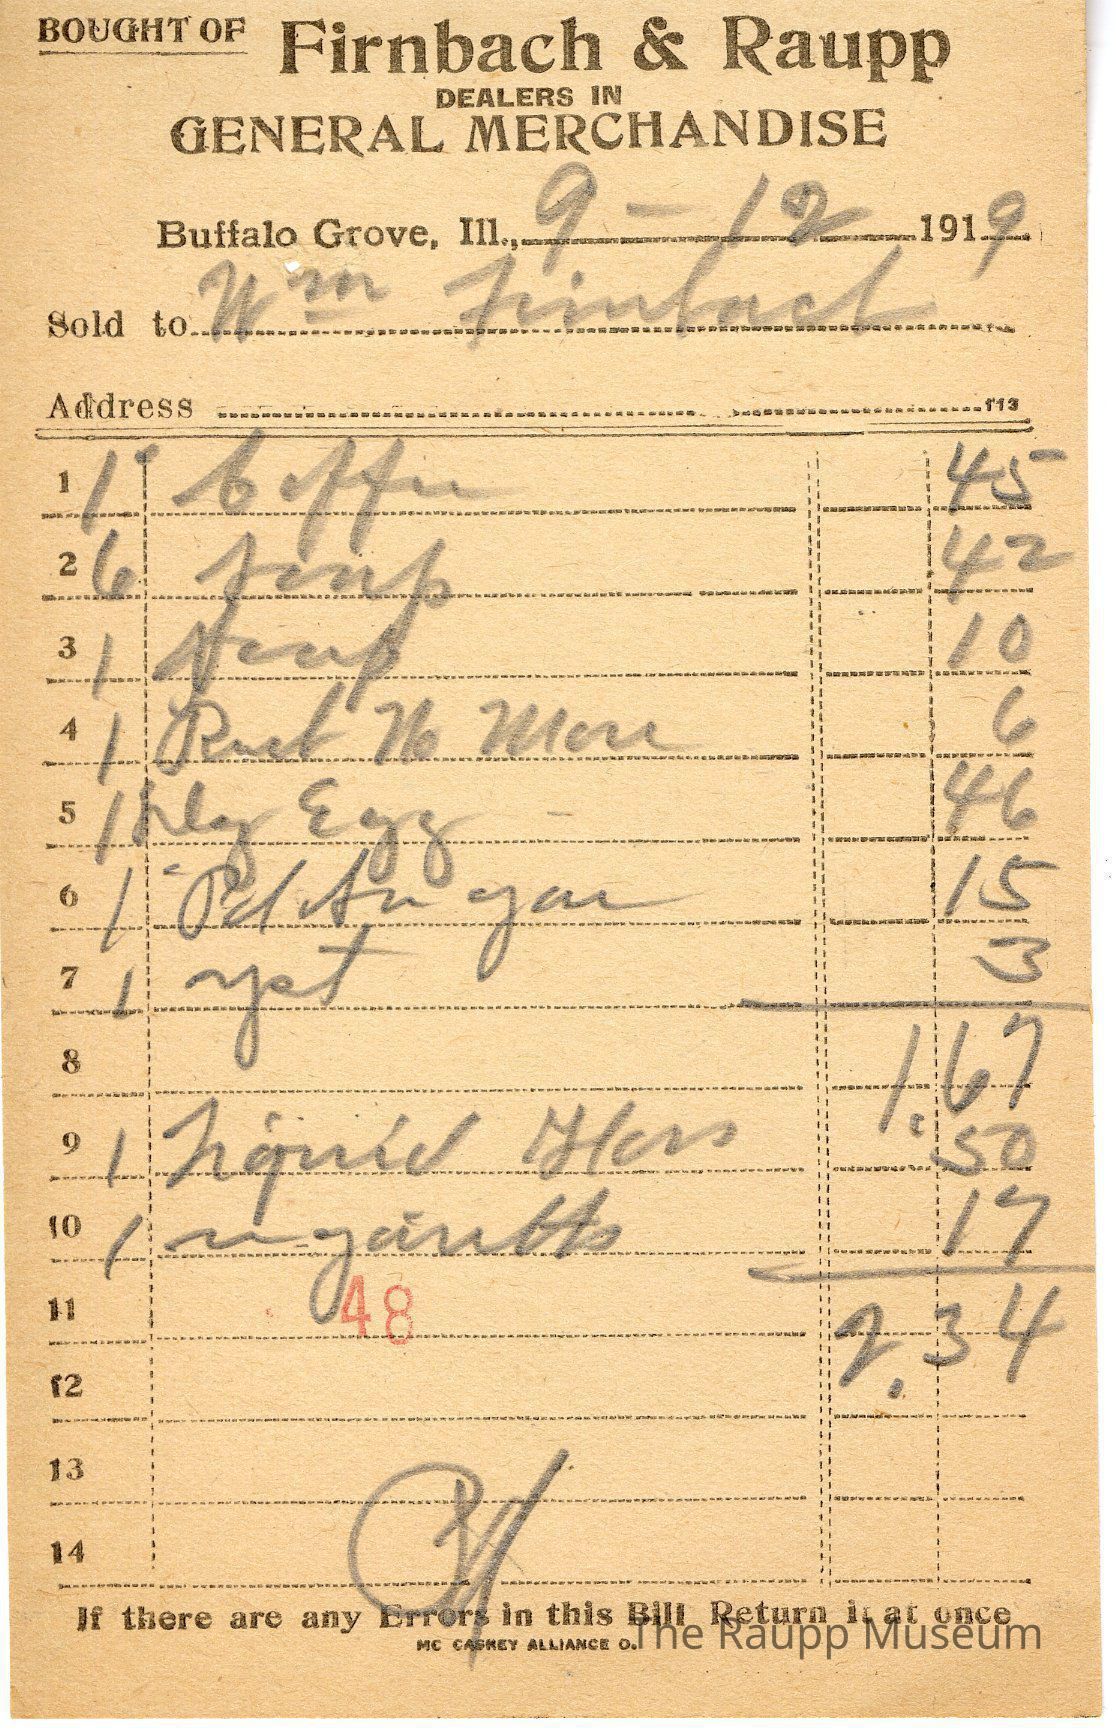 BOUGHT OF Firnbach & Raupp
DEALERS IN
GENERAL MERCHANDISE
Buffalo Grove, Ill., 9 - 12 1919
Sold to Wm Firnbach
Address 113
1 1 Coffee 45
2 6 Soap 42
3 1 Soap 10
4 1 6
5 1 Dz Egg - 46
6 1 15
7 1 yst 3
8 1.67
9 1 Liquid 50
10 1 17
11 48 2.34
12
13
14
If there are any Errors in this Bill Return it at once
MC CASKEY ALLIANCE O.
The Raupp Museum